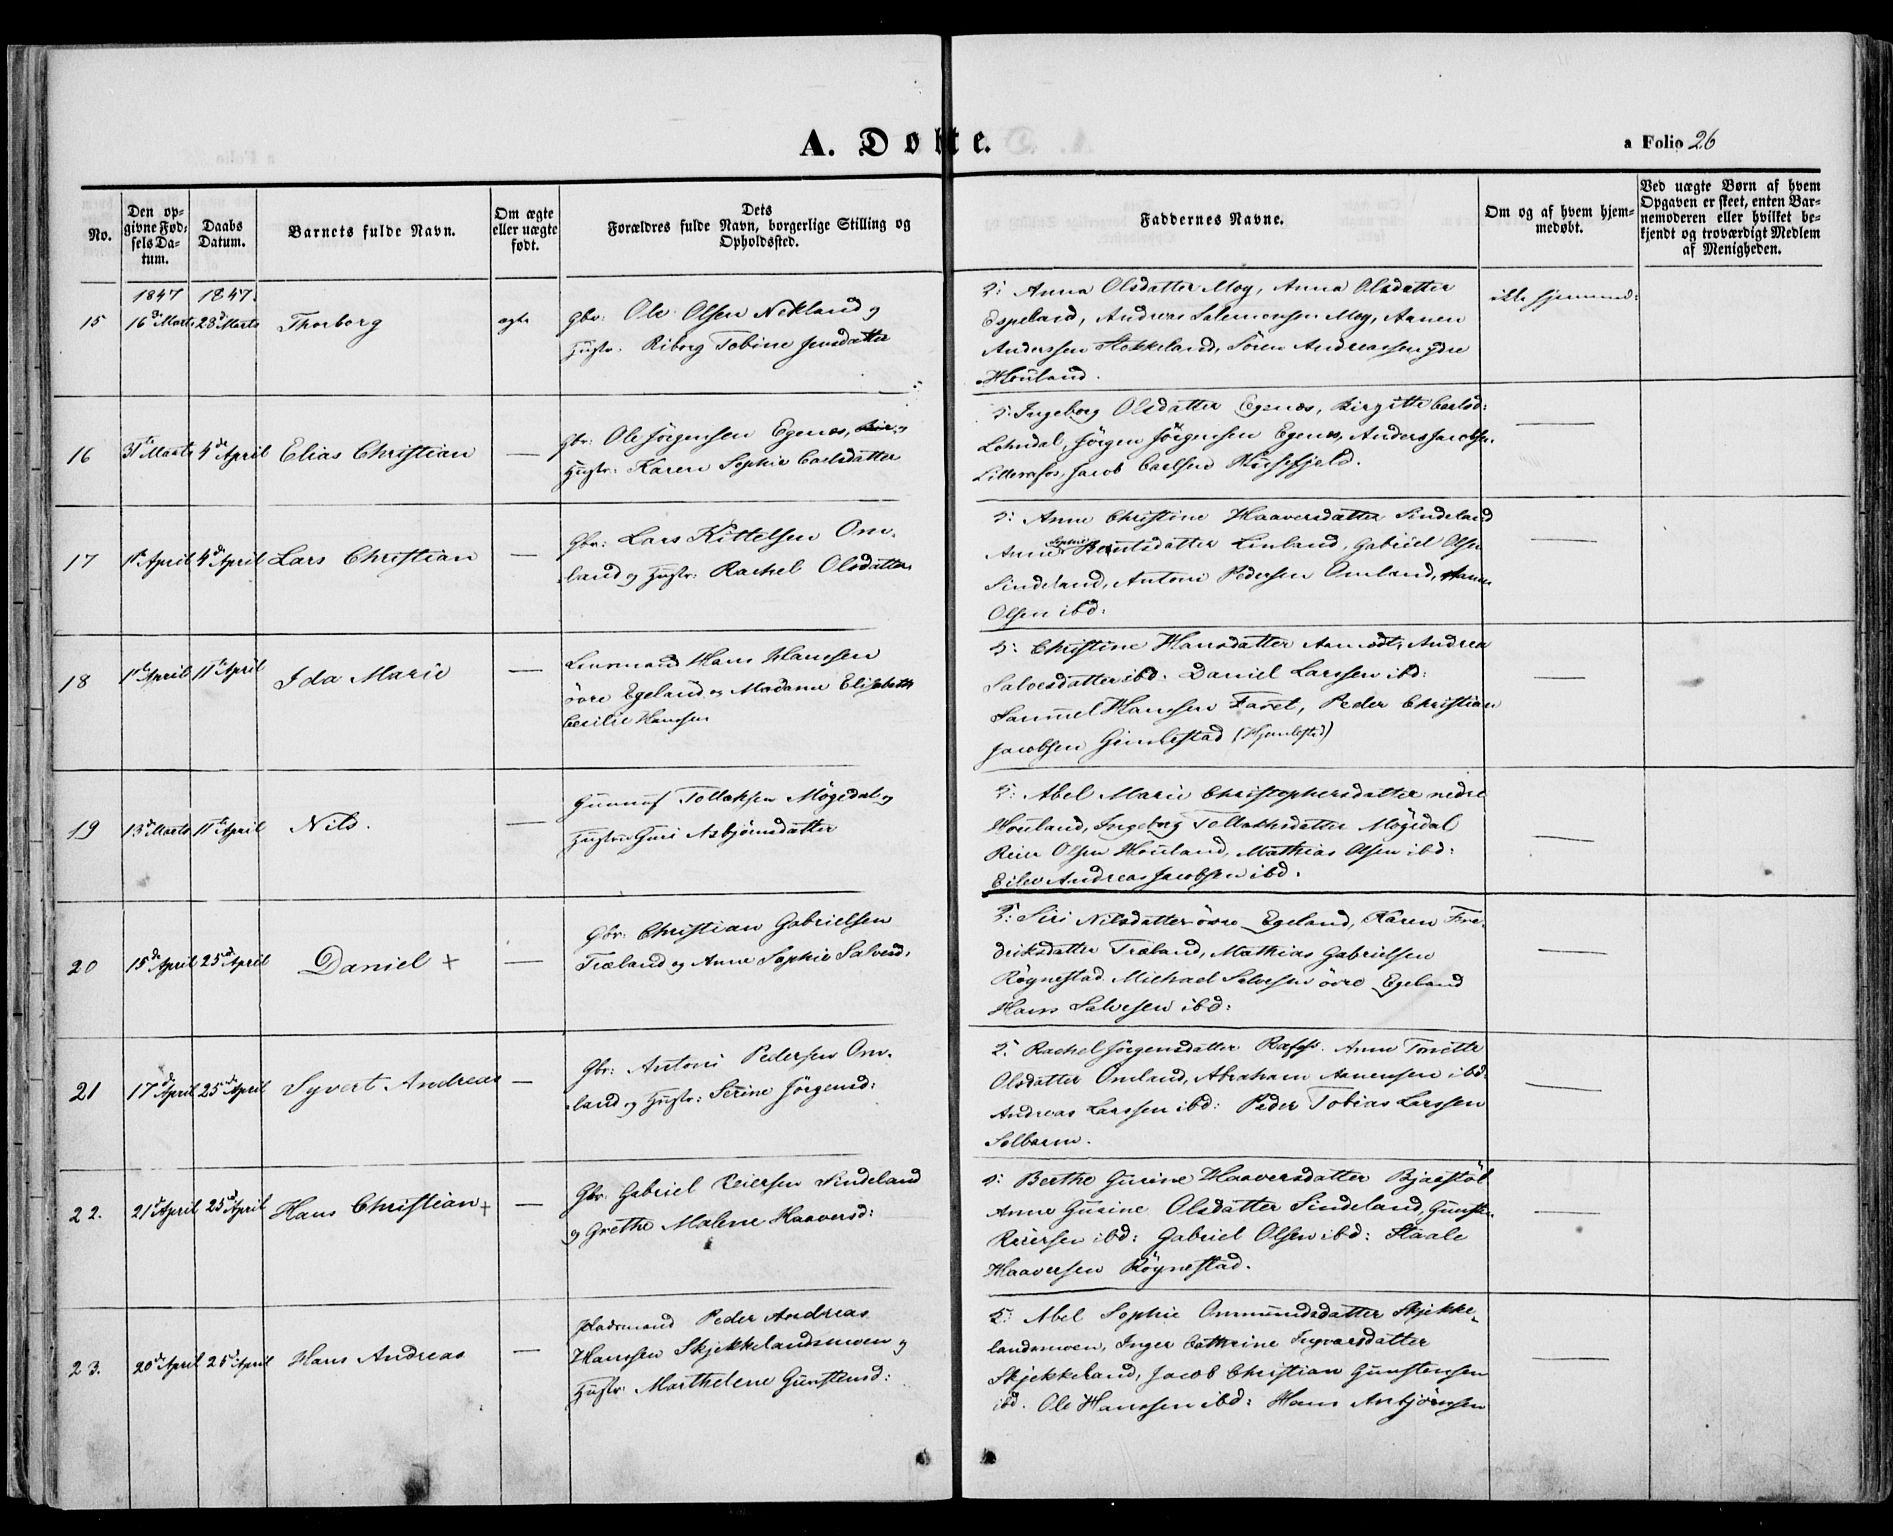 A. Døbte.
a Folio 26
No.
Den opgivne Fødsels Datum.
Daabs Datum.
Barnets fulde Navn.
Om ægte eller uægte født.
Dets Forældres fulde Navn, borgerlige Stilling og Opholdssted.
Faddernes Navne.
Om og af hvem hjemmedøbt.
Ved uægte Børn af hvem Opgaven er skeet, enten Barnemoderen eller hvilket bekjendt og troværdigt Medlem af Menigheden.
1847 1847.
15 16de Marts 28de Marts Thorborg ægte
Gbr: Ole Olsen Nekland og
Hustr: Riborg Tobine Jensdatter
5: Anna Olsdatter Moy, Anna Olsdatter
Espeland, Andreas Salemonsen Moy, Aanen
Anderssen Stokkeland, Sören Andreassen ydre
Houland.
ikke hjemmed:
16 31te Marts 4de April Elias Christian —
Gbr: Ole Jörgensen Egenes, og
Hustr: Karen Sophie Carlsdatter
5: Ingeborg Olsdatter Egenes, Birgitte Carlsd:
Lohndal, Jörgen Jörgensen Egenes, Anders Jacobs.
Littlerafos, Jacob Carlsen Husefjeld.
—
17 1te April 4de April Lars Christian —
Gbr: Lars Kittelsen Om-
land og Hustr: Rachel Olsdatter
5: Anne Christine Haaversdatter Sindeland
Anne Sophie Berntsdatter Linland, Gabriel Olsen
Sindeland, Antoni Pedersen Omland, Aanen
Olsen ibd:
—
18 1te April 11te April Ida Marie —
Lensmand Hans Hanssen
övre Egeland og Madame Elisabeth
Cecilie Hansen
5: Christine Hansdatter Aamodt, Andrea
Salvesdatter ibd: Daniel Larssen ibd:
Samuel Hanssen Faret, Peder Christian
Jacobsen Gimlestad (Hjemlestad)
—
19 13de Marts 11te April Nils. —
Gunnuf Tollaksen Mögedal og
Hustru Guri Asbjörnsdatter
5: Abel Marie Christophersdatter nedre
Houland, Ingeborg Tollaksdatter Mögedal
Reier Olsen Houland, Mathias Olsen ibd:
Eilev Andreas Jacobsen ibd.
—
20 15de April 25de April Daniel + —
Gbr: Christian Gabrielsen
Træland og Anne Sophie Salvesd:
5: Siri Nilsdatter övre Egeland, Karen Fre-
driksdatter Træland, Mathias Gabrielsen
Rögnestad Michael Salvesen övre Egeland
Hans Salvesen ibd:
—
21 17de April 25de April Syvert Andreas —
Gbr: Antoni Pedersen Om-
land og Hustr: Serine Jörgensd:
5: Rachel Jörgensdatter Anne Tonette
Olsdatter Omland, Abraham Aanensen ibd:
Andreas Larssen ibd: Peder Tobias Larssen
Solberm.
—
22. 21de April 25de April Hans Christian + —
Gbr: Gabriel Reiersen Sindeland
og Grethe Malene Haaversd:
5: Berthe Gurine Haaversdatter Bjaastöl
Anne Gurine Olsdatter Sindeland, Gunste
Reiersen ibd: Gabriel Olsen ibd: Staale
Haaversen Rögnestad.
—
23. 20de April 25de April Hans Andreas —
Pladsmand Peder Andreas
Hanssen Skjekkelandsmoen og
Hustr: Marthelene Gunstensd:
5: Abel Sophie Ommundsdatter Skjekke-
landsmoen, Inger Cathrine Ingvarsdatter
Skjekkeland, Jacob Christian Gunstensen
ibd. Ole Hanssen ibd: Hans Asbjörnsen
—